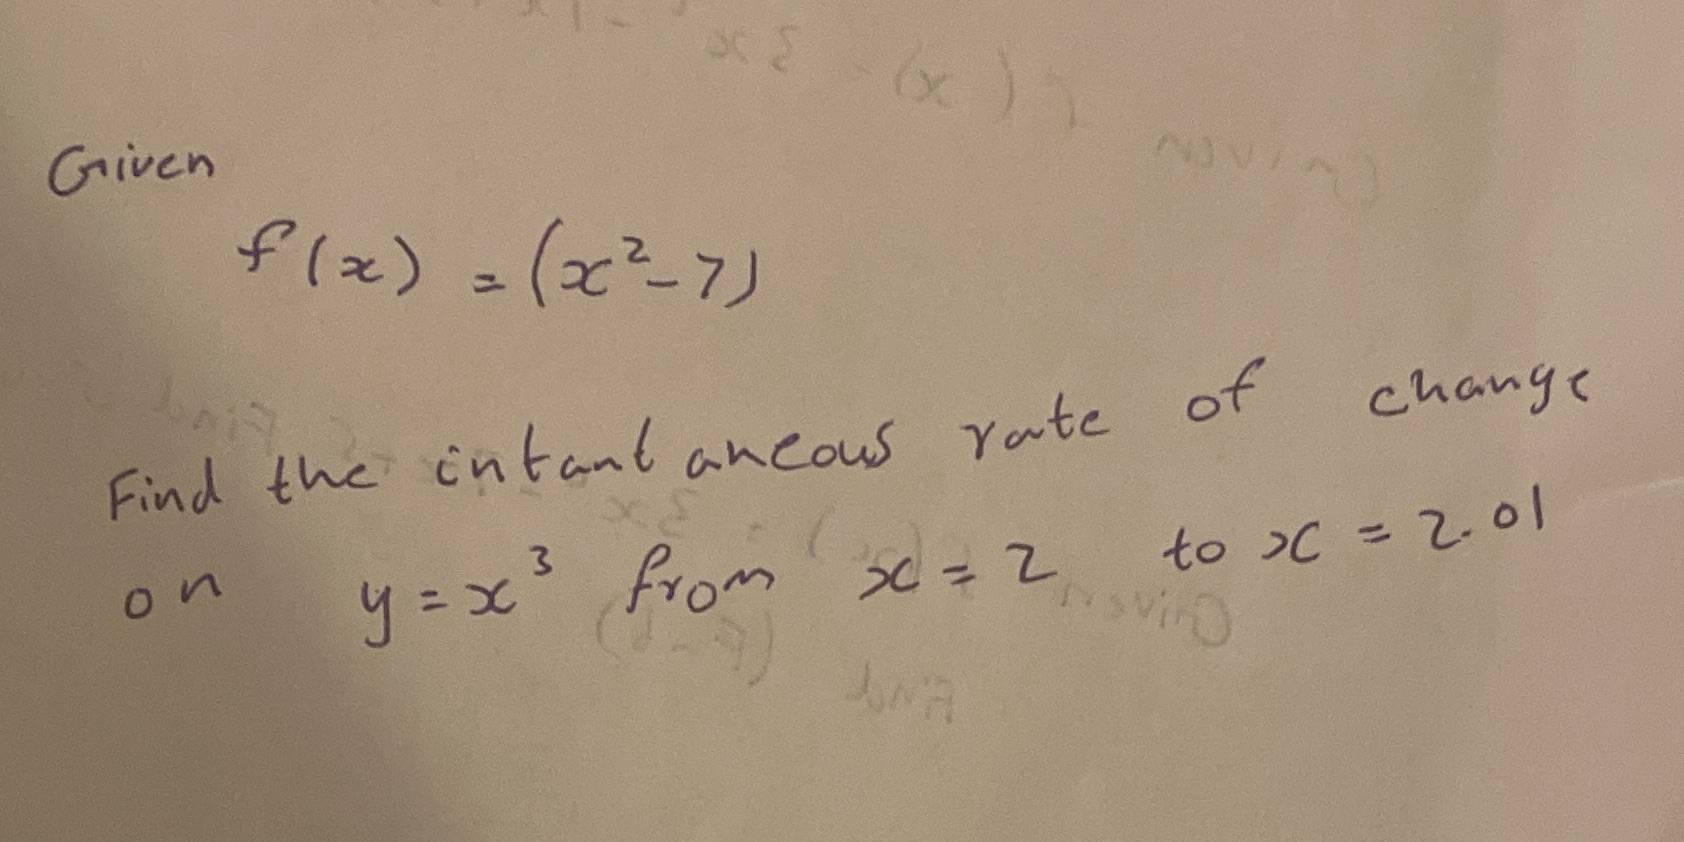 Given
f(x) = (x²-7)
Find the intantaneous rate of change
on y = x³ from x = 2 to x = 2.01